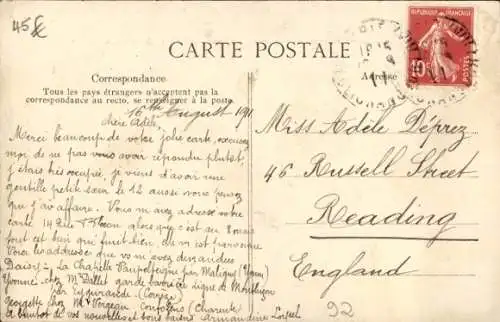 45€
CARTE POSTALE
Correspondance
Tous les pays étrangers n'acceptent pas la
correspondance au recto, se renseigner à la poste.
Adresse
REPUBLIQUE FRANÇAISE
10c
POSTES
16th August 1911
Chère Adèle,
Merci beaucoup de votre jolie carte, excusez
moi de ne pas vous avoir répondu plutôt,
j'étais très occupée, je viens d'avoir une
gentille petite sœur le 12 aussi vous pensez
que j'ai affaire. Vous m'avez adressé votre
carte 14 Rue alors que c'est au
tout est bien qui finit bien, elle m'est parvenue
Voici les addresses que vous m'avez demandées
Daisy : La Chapelle Vaupelteigne par Maligny (Yonne)
Yvonne chez Mr garde barrière Ligne de Montluçon
par Eygurande (Corrèze)
Georgette chez Mr Vergeau Confolens (Charente)
à bientôt de vos nouvelles et bons baisers Armandine
Miss Adèle Déprez
46 Russell Street
Reading
England
92